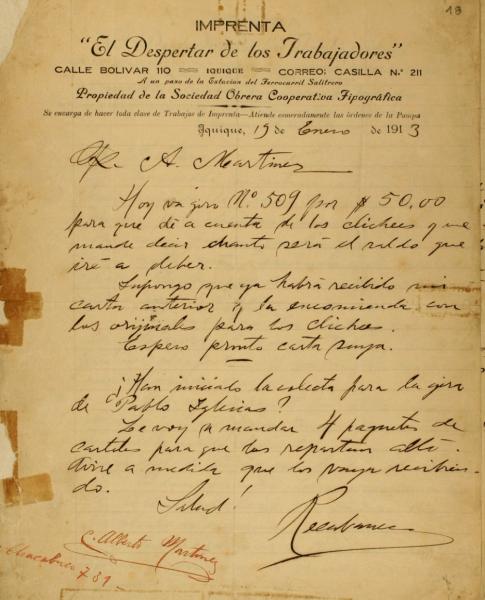 18
IMPRENTA
"El Despertar de los Trabajadores"
CALLE BOLIVAR 110 IQUIQUE CORREO: CASILLA N.º 211
A un paso de la Estacion del Ferrocarril Salitrero
Propiedad de la Sociedad Obrera Cooperativa Tipográfica
Se encarga de hacer toda clase de Trabajos de Imprenta—Atiende esmeradamente las órdenes de la Pampa
Iquique, 19 de Enero de 1913
A. Martinez
Hoy va giro Nº 509 por $ 50,00
para que dé a cuenta de los clichees y me
mande decir cuanto será el saldo que
iré a deber.
Supongo que ya habrá recibido mi
carta anterior y la encomienda con
los orijinales para los clichees.
Espero pronto carta suya.
¿Han iniciado la colecta para la gira
de Pablo Iglesias?
Le voy a mandar 4 paquetes de
carteles para que los repartan allá.
a medida que los vaya recibien-
do.
Salud!
Recabarren
C. Alberto Martinez
Chacabuco 781